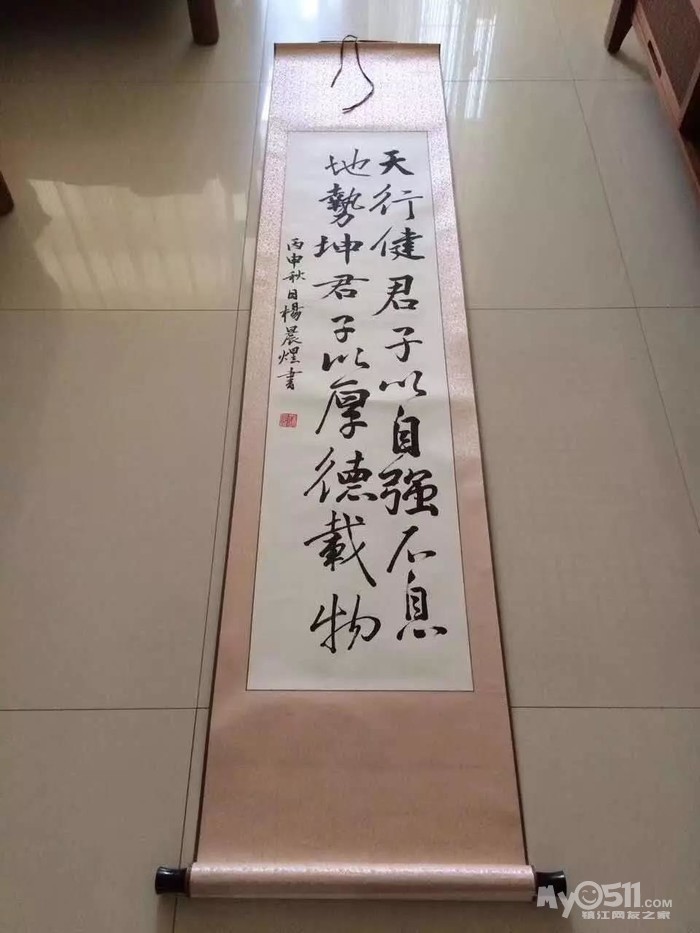 天行健君子以自强不息
地勢坤君子以厚德載物
丙申秋日楊晨煜書
My0511.COM
镇江网友之家